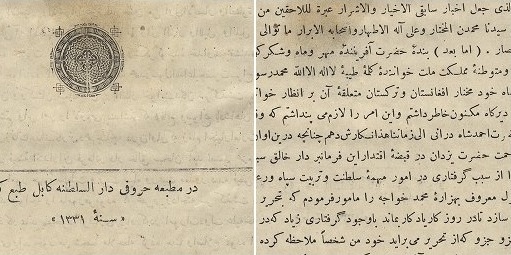 در مطبعه حروفی دار السلطنه کابل طبع
« سنهٔ ۱۳۳۱ »
لذی جعل اخبار سابقی الاخیار والاشرار عبرة للاحقین من
سیدنا محمدن المختار وعلی آله الاطهار واصحابه الابرار ما توالی
صار . ( اما بعد ) بندهٔ حضرت آفرینندهٔ مهر وماه وشکرک
ومتوطنهٔ مملکت ملت خوانندهٔ کلمهٔ طیبهٔ لااله الاالله محمدرسو
اه خود مختار افغانستان وترکستان متعلقهٔ آن بر انظار خوا
دیرکاه مکنون خاطرداشتم واین امر را لازم می پنداشتم که وق
رت احمدشاه درانی الی زماننا هذا نکارش دهم چنانچه درین اوان
حمت حضرت یزدان در قبضهٔ اقتدار این فرمانبر دار خالق سب
ا از سبب گرفتاری در امور مهمهٔ سلطنت وتربیت سپاه ورع
ول معروف بهزارهٔ محمد خواجه را مامور فرمودم که بتحریر
سازد تادر روز کاریادکار بماند باوجود گرفتاری زیاد که در
زو جزو که از تحریر می براید خود من شخصاً ملاحظه کرده